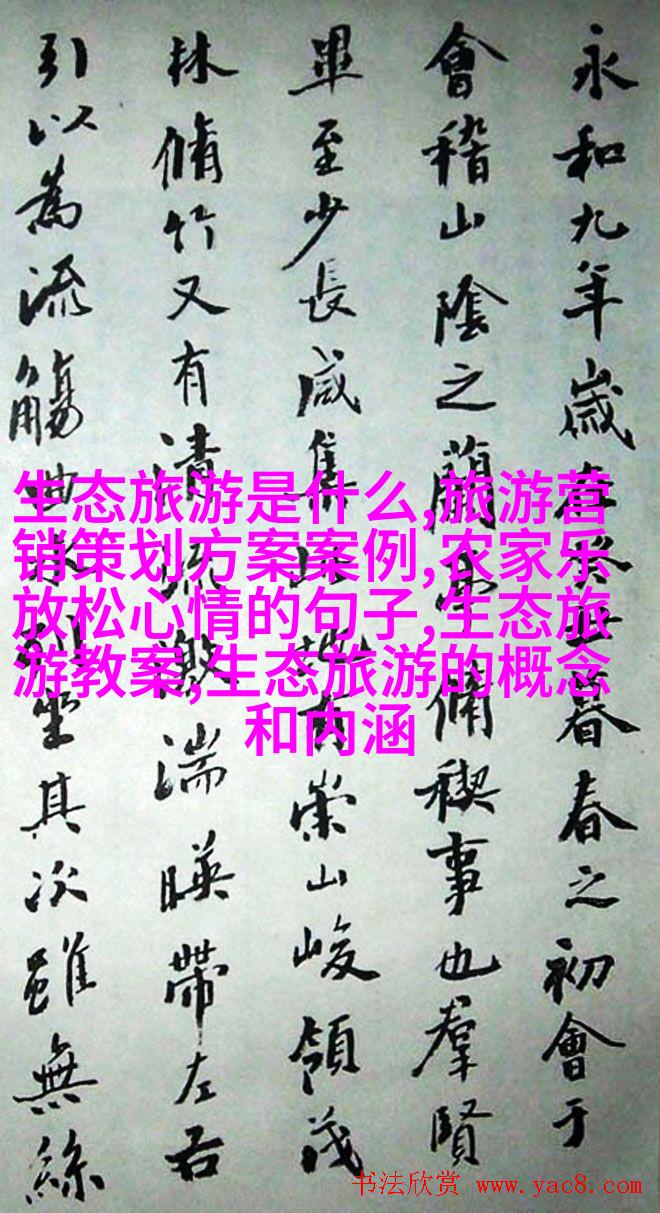 永和九年歲在癸丑暮春之初會于
會稽山陰之蘭亭脩稧事也羣賢
畢至少長咸集此地有崇山峻領茂
林脩竹又有清流激湍暎帶左右
引以為流觴曲水列坐其次雖無絲
生态旅游是什么,旅游营
销策划方案案例,农家乐
放松心情的句子,生态旅
游教案,生态旅游的概念
和内涵
书法欣赏 www.yac8.com